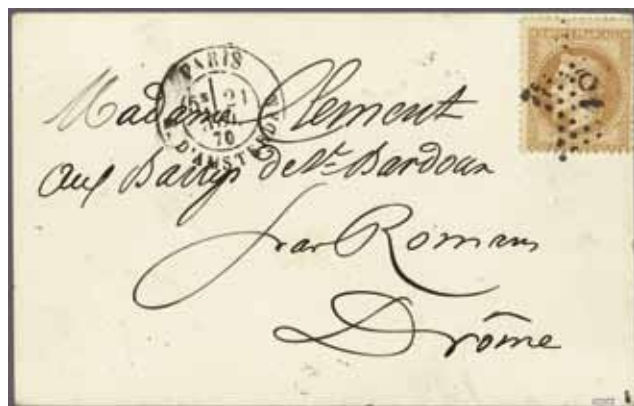 PARIS
21
70
D'AMSTERDAM
Madame Clement
aux Barrys de St. Bardoux
par Romans
Drôme